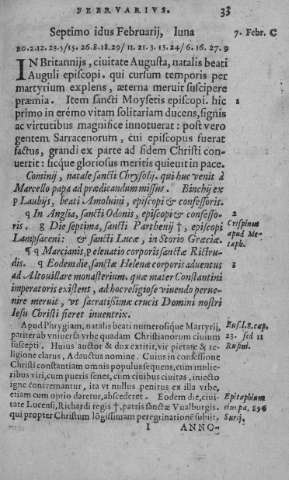 FEBRVARIVS. 33
Septimo idus Februarij, luna 7. Febr. C
20.2.12.23.3/15.26.8.18.20/11.21.3.13.24/6.16.27.9
IN Britannijs, ciuitate Augusta, natalis beati
Auguli episcopi. qui cursum temporis per
martyrium explens, æterna meruit suscipere
præmia. Item sancti Moysetis episcopi. hic
primo in eremo vitam solitariam ducens, signis
ac virtutibus magnifice innotuerat: post vero
gentem Sarracenorum, cui episcopus fuerat
factus, grandi ex parte ad fidem Christi con-
uertit: sicque gloriosus meritis quieuit in pace.
Cominij, natale sancti Chrysolij. qui huc venit à
Marcello papa ad prædicandum missus. Binchij ex
p Laubijs, beati Amoluini, episcopi & confessoris.
q In Anglia, sancti Odonis, episcopi & confesso-
ris. g Die septima, sancti Parthenij †, episcopi
Lampsaceni: & sancti Lucæ, in Storio Græciæ.
¶ q Marcianis, p eleuatio corporis sanctæ Rictru-
dis. x Eodem die, sanctæ Helenæ corporis aduentus
ad Altouillare monasterium. quæ mater Constantini
imperatoris existens, ad hoc religiose viuendo perue-
nire meruit, vt sacratissimæ crucis Domini nostri
Iesu Christi fieret inuentrix.
a
Crispinus
apud Me-
taph.
Apud Phrygiam, natalis beati numerosique Martyrij,
pariter ob vniuersa vrbe quadam Christianorum ciuium
suscepti. Huius auctor & dux extitit, vir pietate & re-
ligione clarus, Adauctus nomine. Cuius in confessione
Christi constantiam omnis populus sequens, cum mulie-
ribus viri, cum pueris senes, cum ciuibus ciuitas, iniecto
igne concremantur, ita vt nullus penitus ex illa vrbe,
etiam cum optio daretur, abscederet. Eodem die, ciui-
tate Lucensi, Richardi regis †, patris sanctæ Vualburgis.
qui propter Christum longissimam peregrinationē subijt.
Eus.l.8.cap.
23. sed 11
Rufini.
Epitaphium
Surij.
I ANNO-